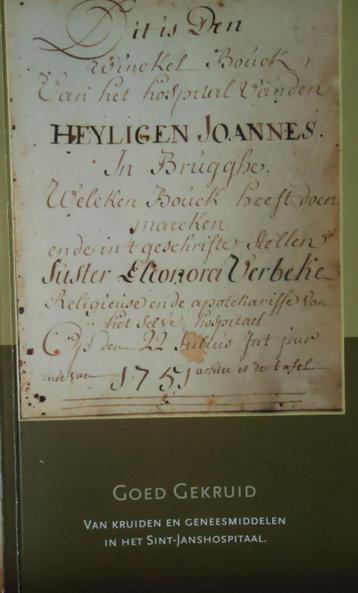 Dit is Den
Winckel Bouck,
Van het hospital Vanden
HEYLIGEN JOANNES.
In Brugghe.
Welcken Bouck heeft doen
maecken
ende int geschrifte stellen
Suster Eleonora Verbeke
Religieuse ende apotekarisse van
het selve hospitael
Op den 22 Julius Int jaer
ende van 1751 achter is de tafel
GOED GEKRUID
VAN KRUIDEN EN GENEESMIDDELEN
IN HET SINT-JANSHOSPITAAL.